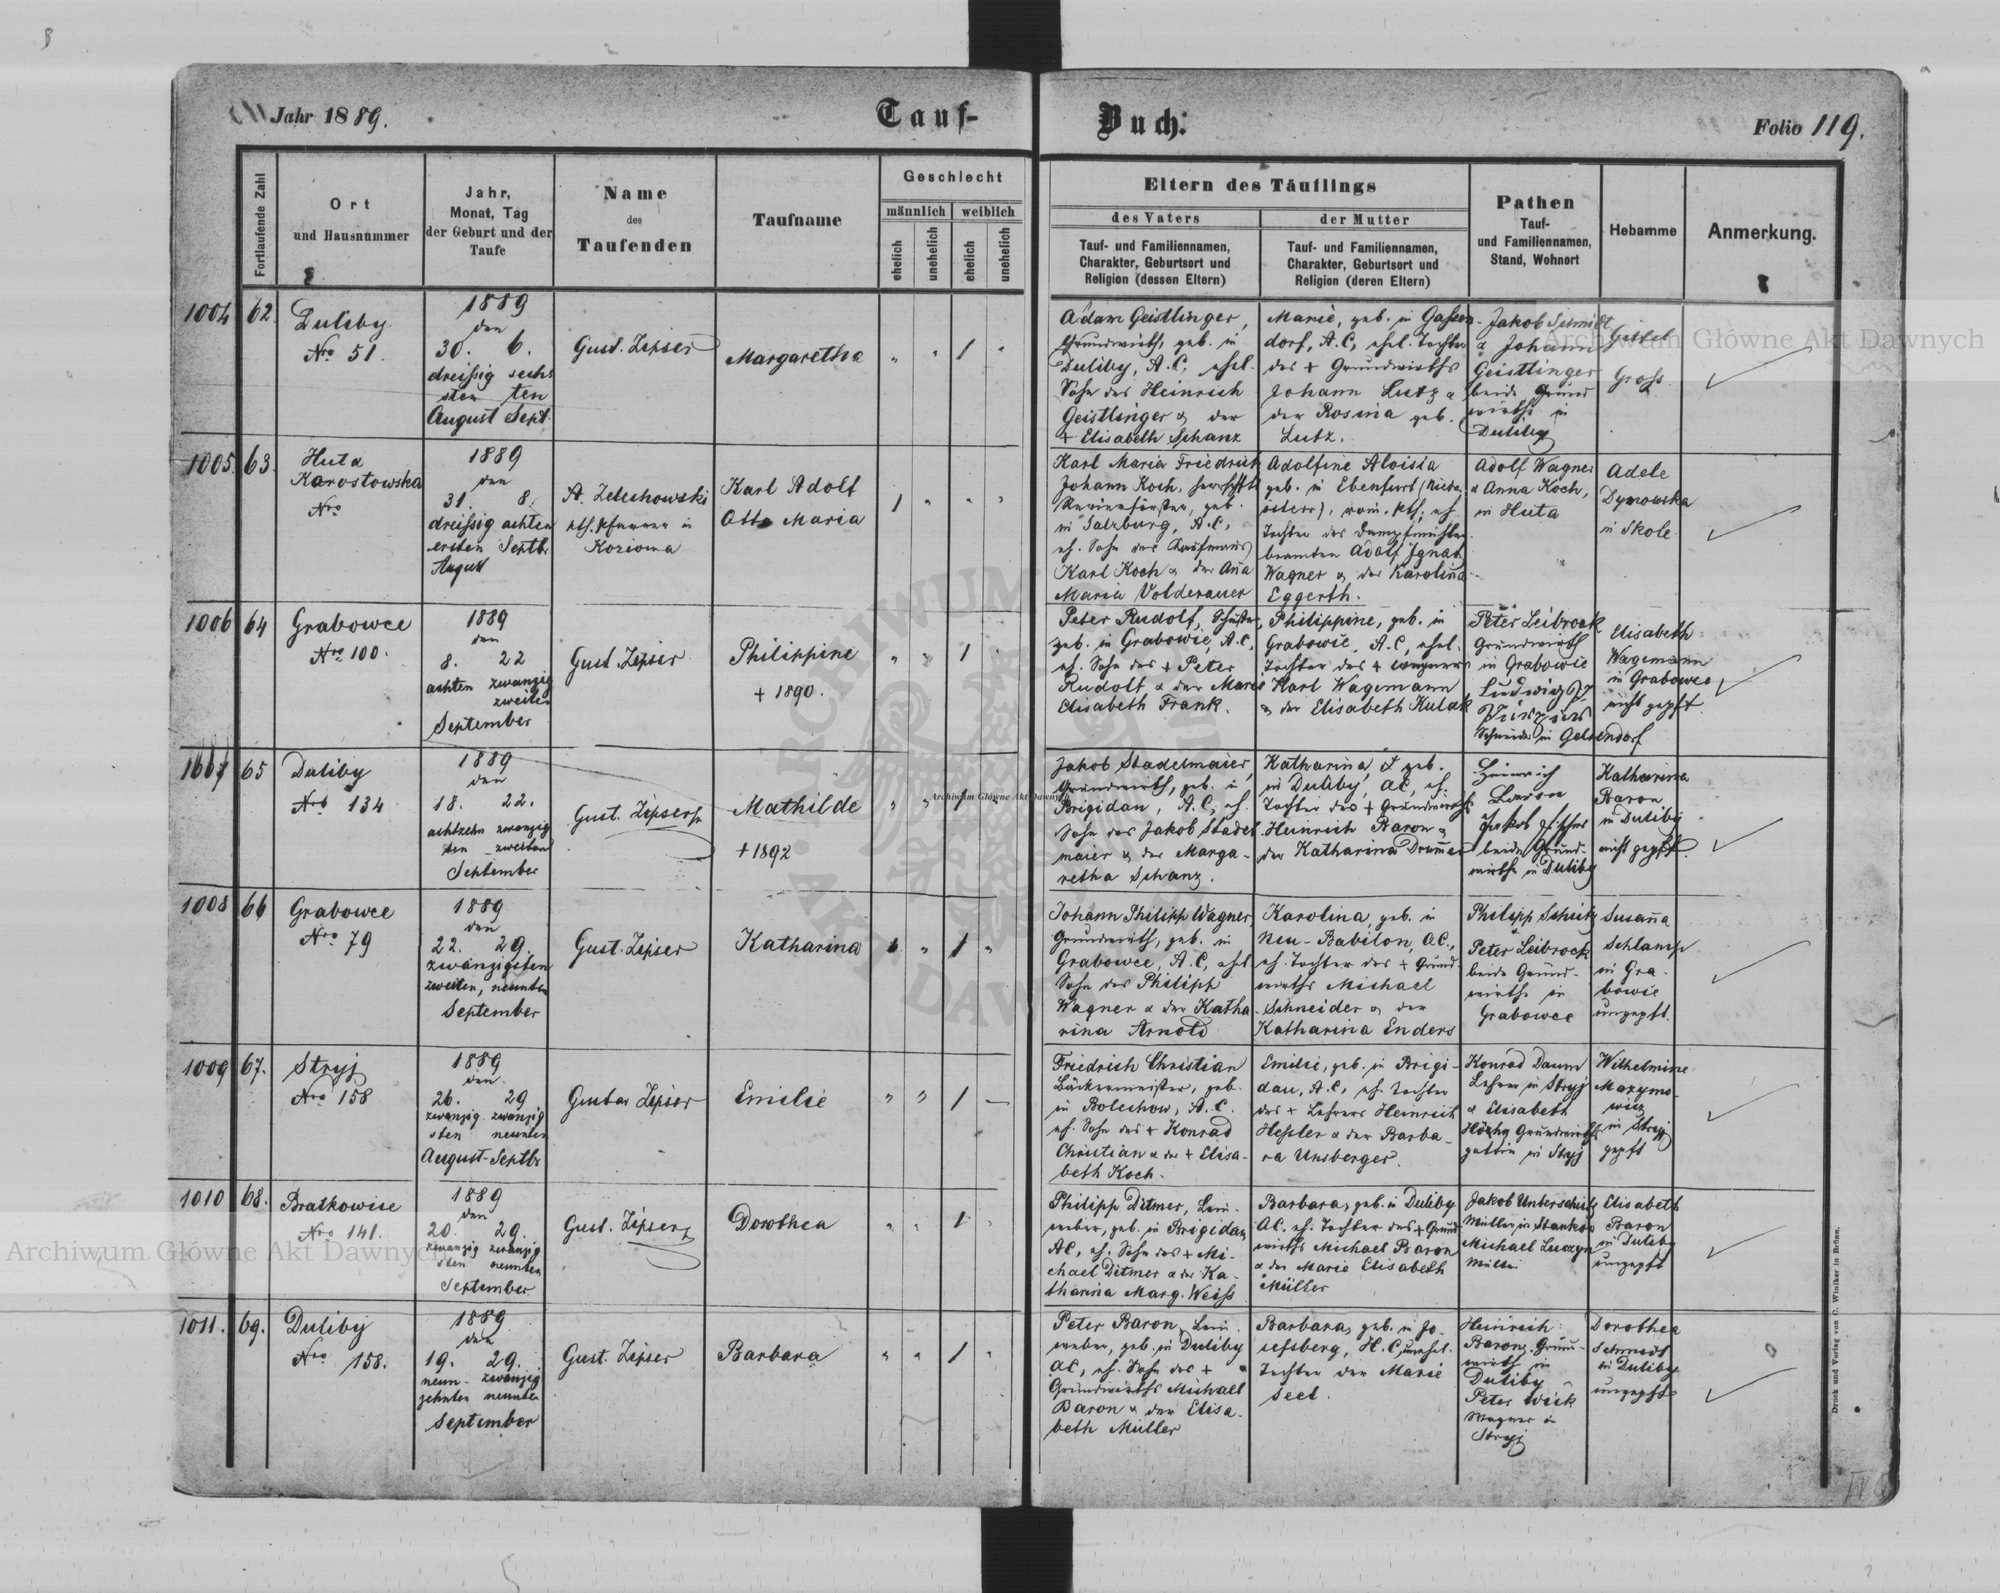 Jahr 1889.
Tauf-
Buch:
Folio 119.
Fortlaufende Zahl
Ort
und Hausnummer
Jahr,
Monat, Tag
der Geburt und der
Taufe
Name
des
Taufenden
Taufname
Geschlecht
männlich
weiblich
ehelich
unehelich
ehelich
unehelich
Eltern des Täuflings
des Vaters
Tauf- und Familiennamen,
Charakter, Geburtsort und
Religion (dessen Eltern)
der Mutter
Tauf- und Familiennamen,
Charakter, Geburtsort und
Religion (deren Eltern)
Pathen
Tauf-
und Familiennamen,
Stand, Wohnort
Hebamme
Anmerkung.
1004 62.
Duliby
Nro 51.
1889
den
30. 6.
dreißig sechs
sten ten
August Sept.
Gust. Zipser
Margaretha
" " 1 "
Adam Geistlinger,
Grundwirth, geb. in
Duliby, A.C, ehel.
Sohn des Heinrich
Geistlinger & der
+ Elisabeth Schanz
Marie, geb. in
dorf, A.C, ehel. Tochter
des + Grundwirths
Johann Lutz &
der Rosina geb.
Lutz.
Jakob Schmidt
& Johann
Geistlinger
beide Grund
wirthe in
Duliby
Gittel
Groß.
1005. 63.
Huta
Karostowska
Nro
1889
den
31. 8.
dreißig achten
ersten Septbr
August
A. Zelechowski
kth. Pfarrer in
Koziowa
Karl Adolf
Otto Maria
1 " " "
Karl Maria Friedrich
Johann Koch, herrschftl
Revierförster, geb.
in Salzburg, A.C,
eh. Sohn des Kaufmans
Karl Koch & der Ana
Maria Volderauer
Adolfine Aloisia
geb. in Ebenfurt (Nieder
österr), röm. kth; eh.
Tochter des
beamten Adolf Ignat
Wagner & der Karolina
Eggerth.
Adolf Wagner
& Anna Koch,
in Huta
Adele
Dymowska
in Skole
1006 64
Grabowce
Nro 100.
1889
den
8. 22
achten zwanzig
zweiten
September
Gust. Zipser
Philippine
+ 1890.
" " 1 "
Peter Rudolf, Schuster,
geb. in Grabowce, A.C,
eh. Sohn des + Peter
Rudolf & der Marie
Elisabeth Frank.
Philippine, geb. in
Grabowce, A.C, ehel.
Tochter des + Wagners
Karl Wagemann
& der Elisabeth Kulak
Peter Leibrock
Grundwirth
in Grabowce
Ludwig
Schneider in Gelsendorf
Elisabeth
Wagemann
in Grabowce,
nicht gepft.
1007 65
Duliby
Nro 134
1889
den
18. 22.
achtzehn zwanzig
ten zweiten
September
Gust. Zipser
Mathilde
+ 1892
" " 1 "
Jakob Stadelmaier,
Grundwirth, geb. in
Brigidau, A.C, eh.
Sohn des Jakob Stadel
maier & der Marga-
retha Schanz.
Katharina, geb.
in Duliby, AC, eh.
Tochter des + Grundwirths
Heinrich Baron &
der Katharina Drumer
Heinrich
Baron
& Jakob Fischer
beide Grund-
wirthe in Duliby
Katharina
Baron
in Duliby
nicht gepft.
1008 66
Grabowce
Nro 79
1889
den
22. 29.
zwanzigsten
zweiten, neunten
September
Gust. Zipser
Katharina
" " 1 "
Johann Philipp Wagner,
Grundwirth, geb. in
Grabowce, A.C, ehel
Sohn des Philipp
Wagner & der Katha
rina Arnold
Karolina, geb. in
Neu-Babilon, AC.,
eh. Tochter des + Grund-
wirths Michael
Schneider & der
Katharina Enders
Philipp Schick
Peter Leibrock
beide Grund-
wirthe in
Grabowce
Susana
Schlamp
in Gra-
bowce
ungepft.
1009 67.
Stryj
Nro 158
1889
den
26. 29
zwanzig- zwanzig
sten neunten
August-Septbr
Gustav Zipser
Emilie
" " 1 —
Friedrich Christian
Bäckermeister, geb.
in Bolechow, A.C.
eh. Sohn des + Konrad
Christian & der + Elisa-
beth Koch.
Emilie, geb. in Brigi-
dau, A.C, eh. Tochter
des + Lehrers Heinrich
Hessler & der Barba-
ra Unsberger.
Konrad Daum
Lehrer in Stryj
& Elisabeth
Grundwirths
gattin in Stryj
Wilhelmine
Maxymo-
wicz
in Stryj
gepft
1010 68.
Bratkowice
Nro 141.
1889
den
20. 29.
zwanzig zwanzig
sten neunten
September
Gust. Zipser
Dorothea
" " 1 "
Philipp Ditmer, Lein-
weber, geb. in Brigidau
AC, eh. Sohn des + Mi-
chael Ditmer & der Ka-
tharina Marg. Weiss
Barbara, geb. in Duliby
AC. eh. Tochter des + Grund
wirths Michael Baron
& der Marie Elisabeth
Müller
Jakob Unterschütz
Müller in Stankow
Michael
Müller
Elisabeth
Baron
in Duliby
ungepft
1011. 69.
Duliby
Nro 158.
1889
den
19. 29.
neun- zwanzig
zehnten neunten
September
Gust. Zipser
Barbara
" " 1 "
Peter Baron, Lein-
weber, geb. in Duliby
AC, eh. Sohn des +
Grundwirths Michael
Baron & der Elisa-
beth Müller
Barbara, geb. in Jo-
sefsberg, H.C, unehel.
Tochter der Marie
Seel.
Heinrich
Baron, Grund-
wirth in
Duliby
Peter Wick
Wagner in
Stryj
Dorothea
Schmidt
in Duliby
ungepft
Druck und Verlag von C. Winiker in Brünn.
Archiwum Główne Akt Dawnych
Archiwum Główne Akt Dawnych
Archiwum Główne Akt Dawnych